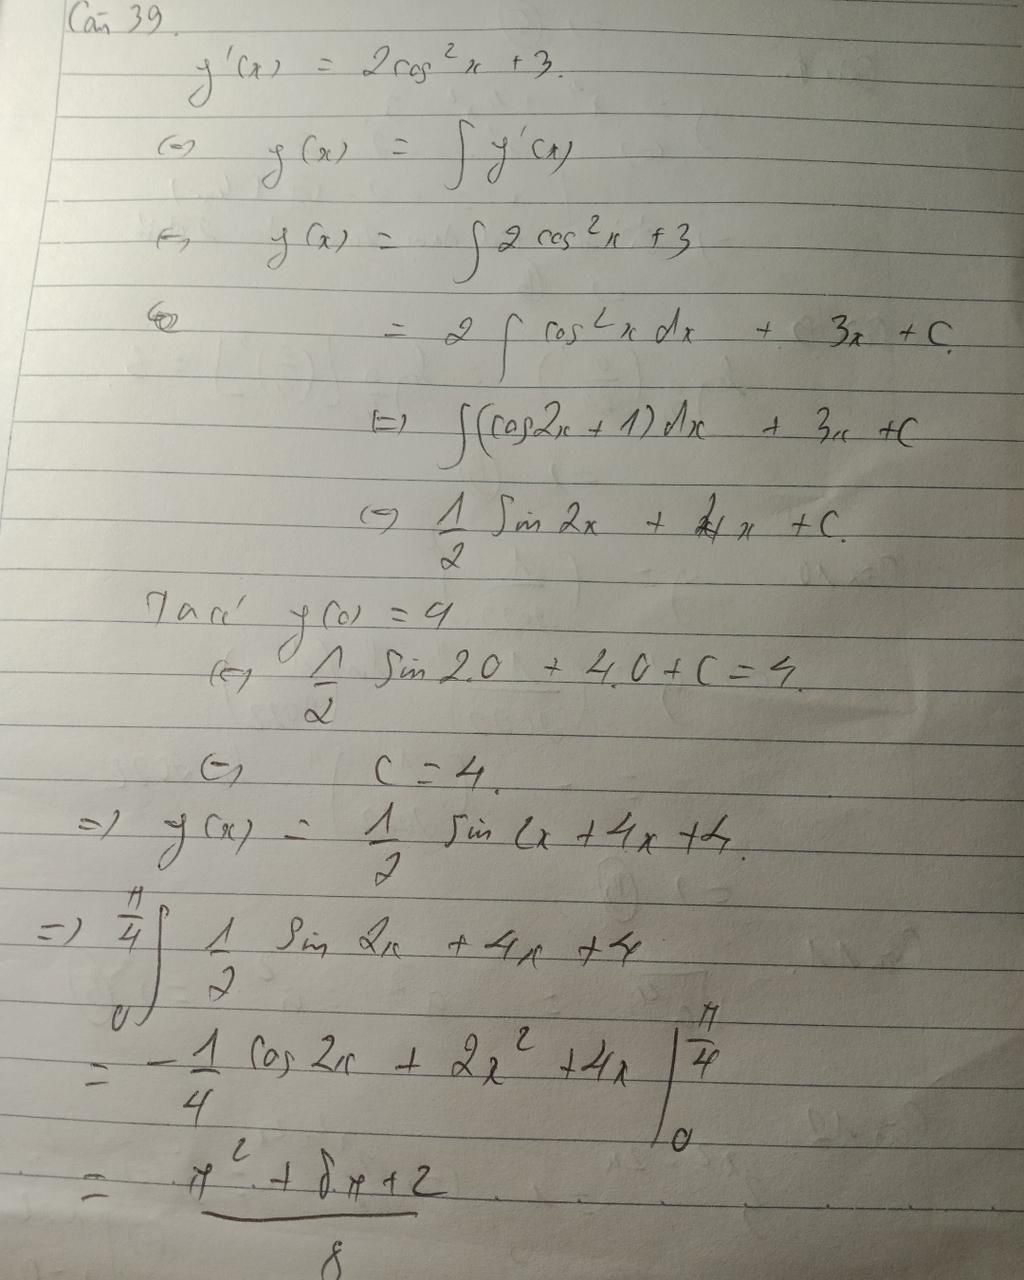 Câu 39.
y'(x) = 2cos²x + 3.
⇔ y(x) = ∫ y'(x)
⇔ y(x) = ∫ 2 cos²x + 3
⇔ = 2 ∫ cos²x dx + 3x + C.
⇔ ∫(cos2x + 1)dx + 3x + C
⇔ 1/2 Sin 2x + 4x + C.
Ta có y(0) = 4
⇔ 1/2 Sin 2.0 + 4.0 + C = 4.
⇔ C = 4.
=) y(x) = 1/2 Sin 2x + 4x + 4.
=) ∫₀^(π/4) 1/2 Sin 2x + 4x + 4
= -1/4 cos 2x + 2x² + 4x |₀^(π/4)
= (π² + 8π + 2)/8